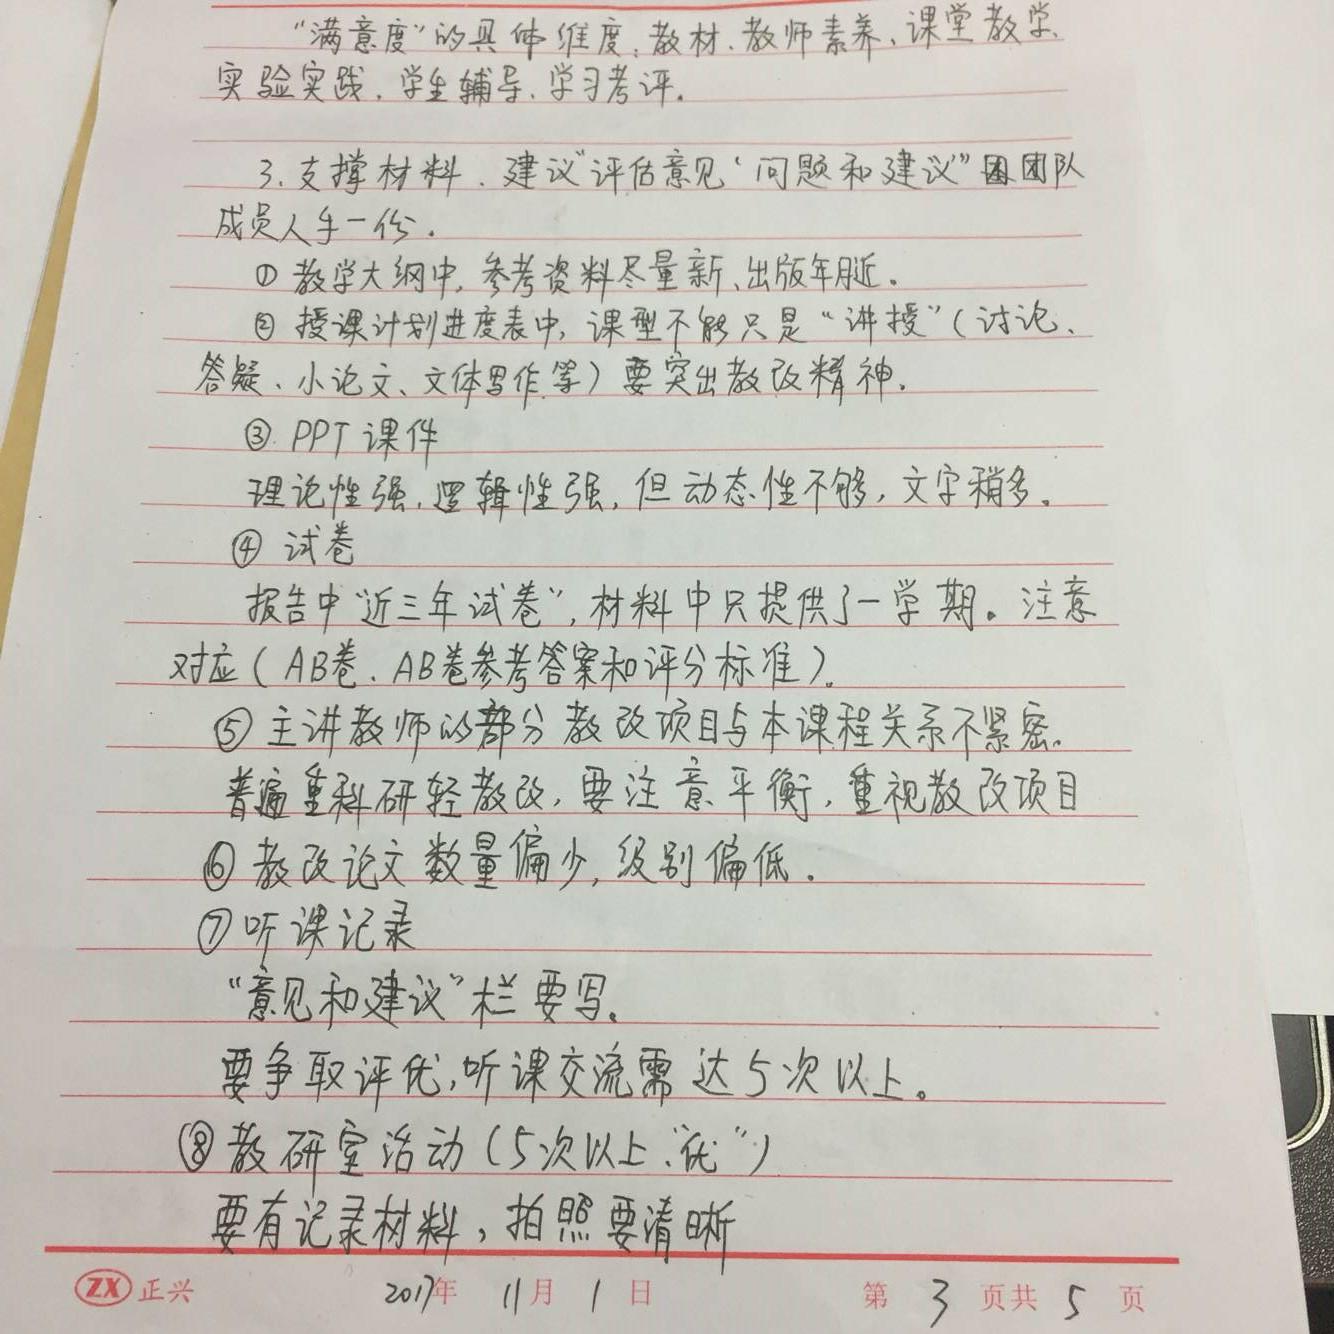 “满意度”的具体维度：教材、教师素养、课堂教学、
实验实践、学生辅导、学习考评。
3.支撑材料、建议“评估意见‘问题和建议”团队
成员人手一份.
① 教学大纲中，参考资料尽量新、出版年月近。
② 授课计划进度表中，课型不能只是“讲授”（讨论、
答疑、小论文、文体写作等）要突出教改精神.
③ PPT课件
理论性强，逻辑性强，但动态性不够，文字稍多。
④ 试卷
报告中“近三年试卷”，材料中只提供了一学期。注意
对应（AB卷、AB卷参考答案和评分标准）.
⑤ 主讲教师的部分教改项目与本课程关系不紧密.
普遍重科研轻教改，要注意平衡，重视教改项目
⑥ 教改论文数量偏少，级别偏低.
⑦ 听课记录
“意见和建议”栏要写.
要争取评优，听课交流需达5次以上。
⑧ 教研室活动（5次以上、“优”）
要有记录材料，拍照要清晰
ZX 正兴 2017年 11月 1日 第 3 页共 5 页